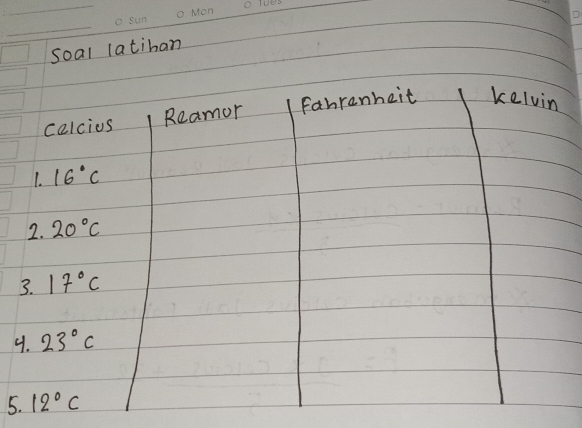 Sun Mon Tues
Soal latihan
Celcius Reamor Fahrenheit Kelvin
1. 16°C
2. 20°C
3. 17°C
4. 23°C
5. 12°C